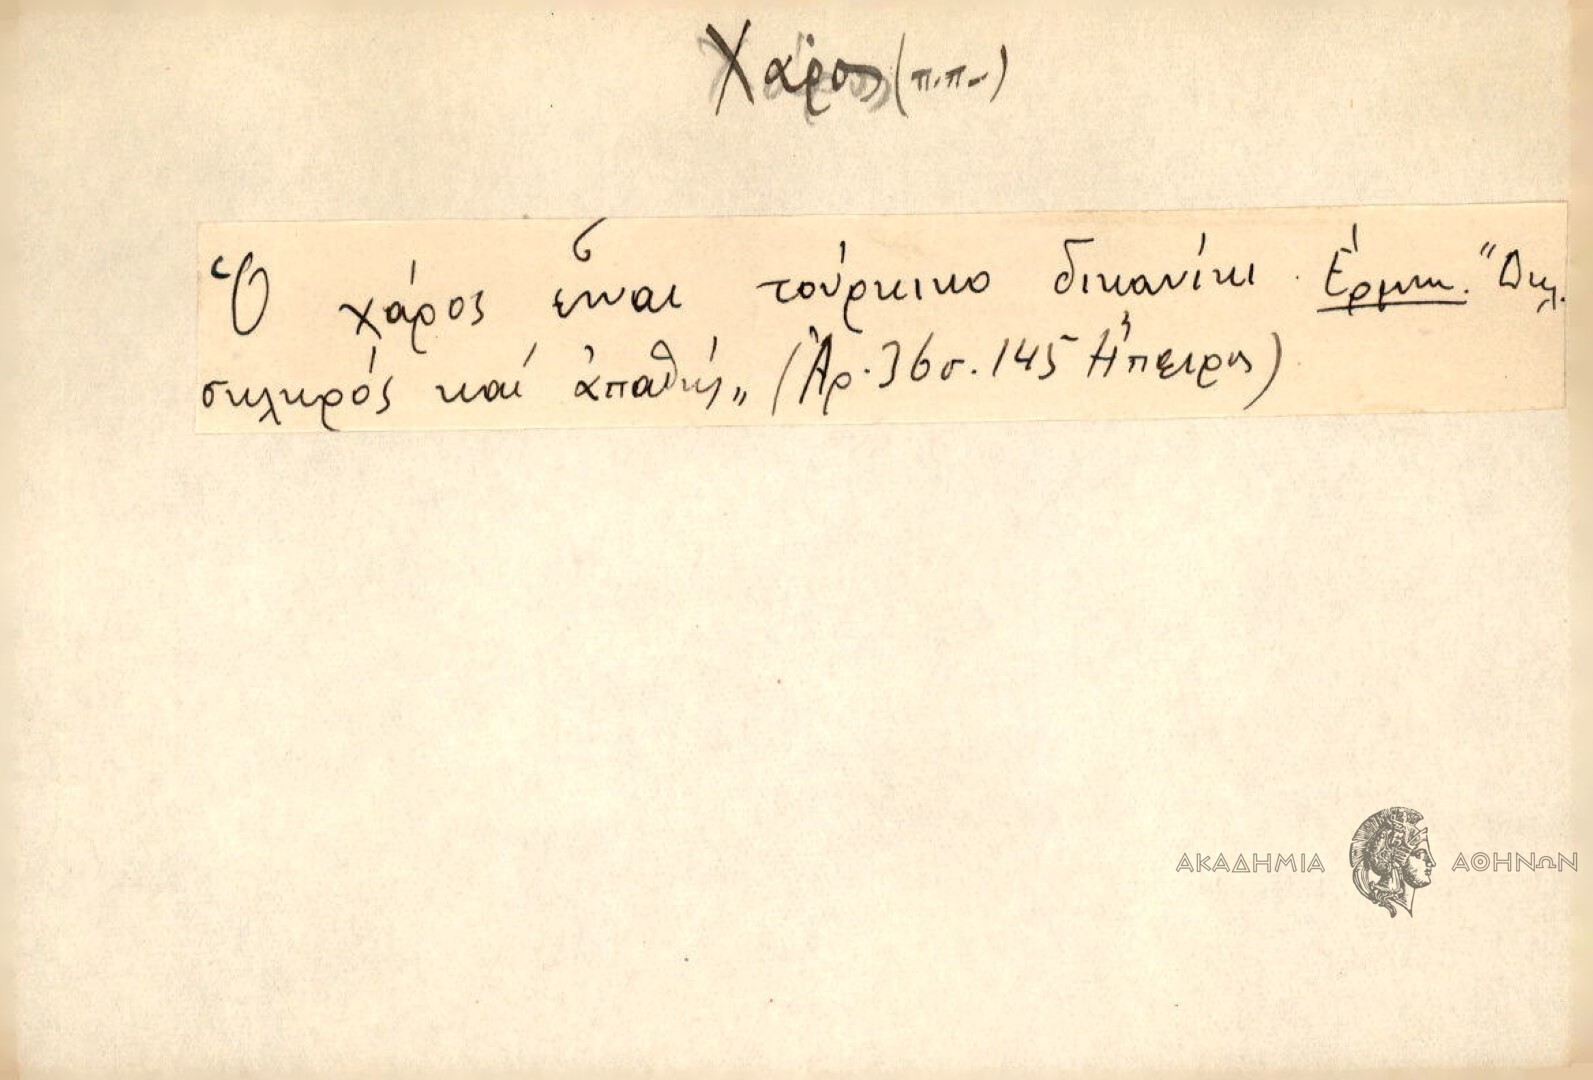 Χάρος (π.π.)
Ὁ χάρος εἶναι τούρκικο δικανίκι. Ἑρμην. "Δηλ.
σκληρός καί ἀπαθής„ (Ἀρ. 36 σ. 145 Ἤπειρος)
ΑΚΑΔΗΜΙΑ ΑΘΗΝΩΝ